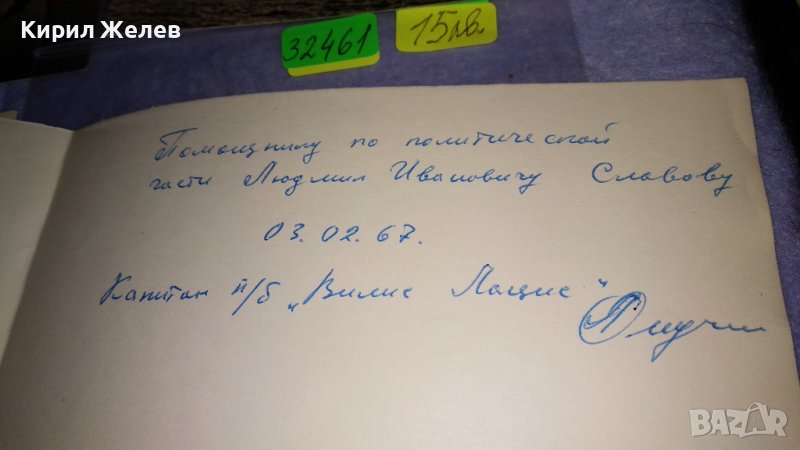 Кирил Желев
32461
15лв.
Помощнику по политической
части Людмил Ивановичу Славову
03.02.67.
Капитан п/б „Вилис Лацис"
BAZAR